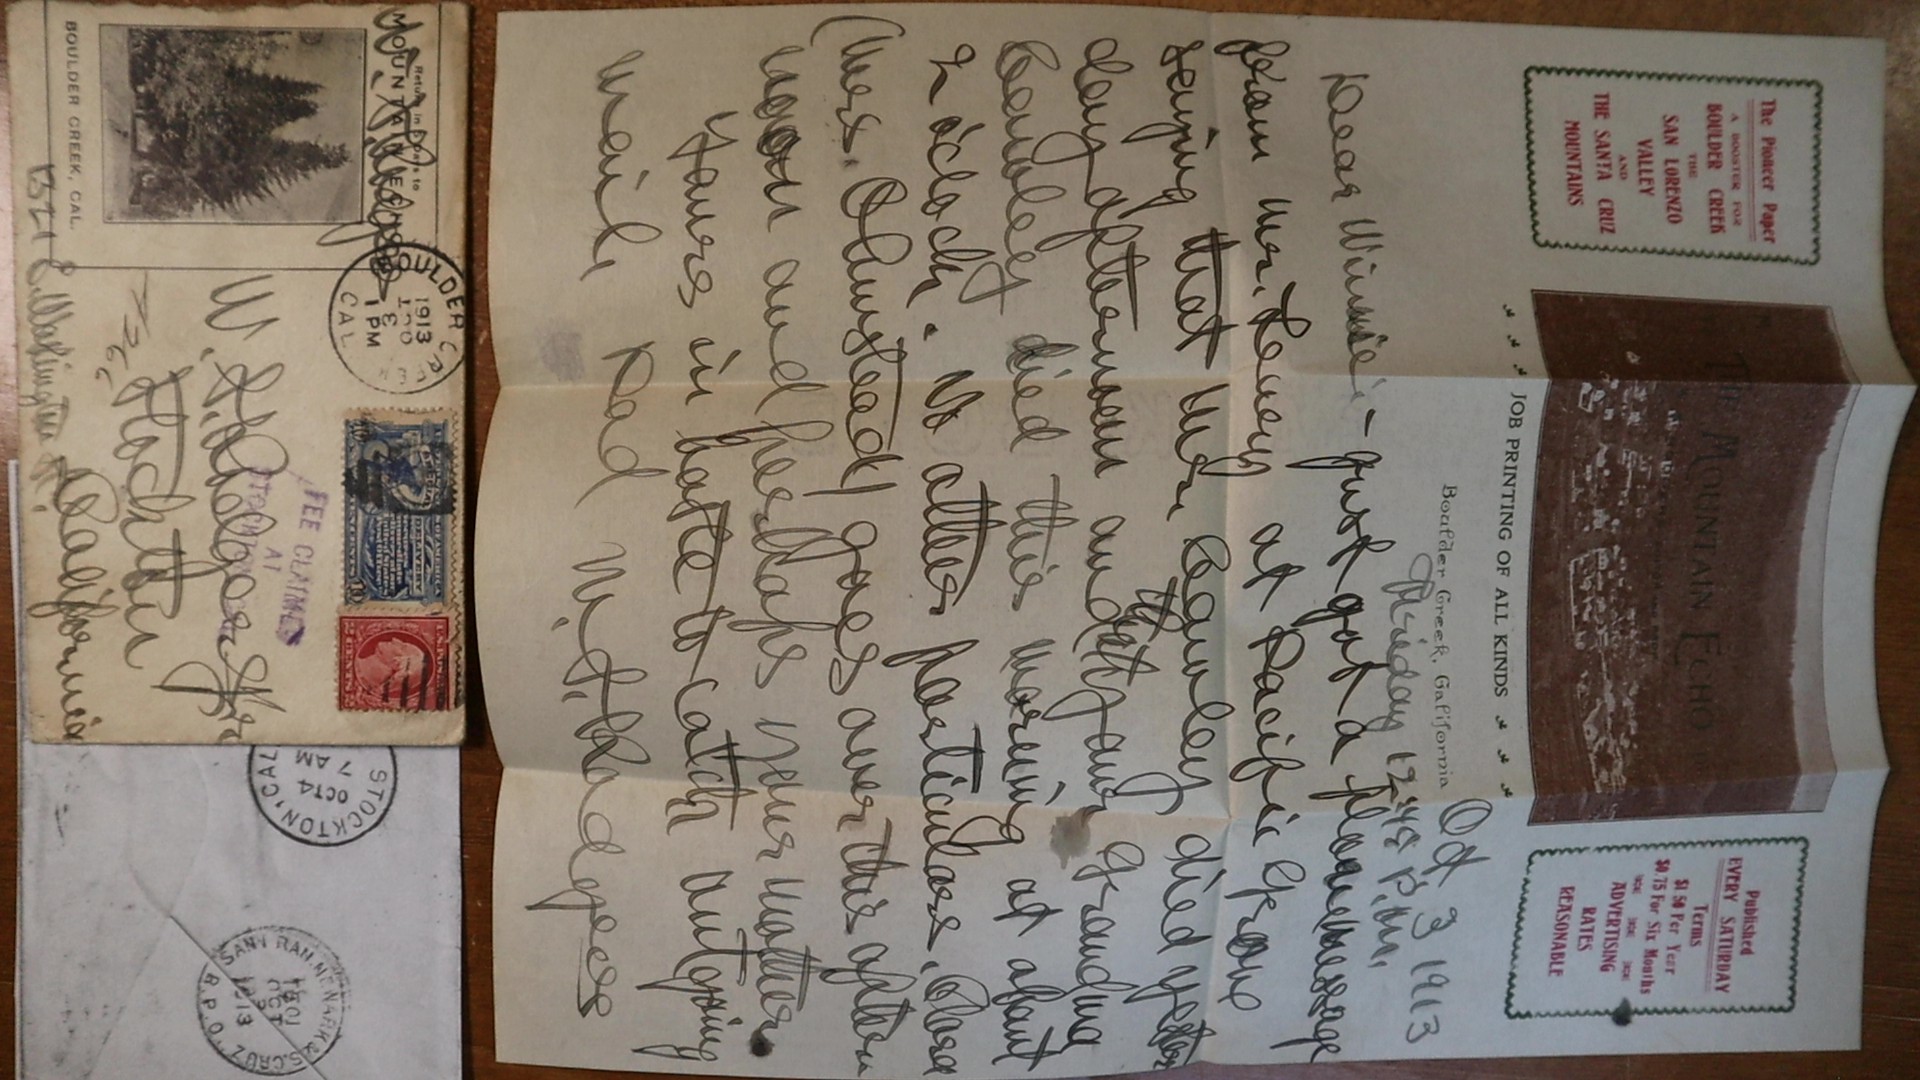 The Pioneer Paper
A BOOSTER FOR
BOULDER CREEK
THE
SAN LORENZO
VALLEY
AND
THE SANTA CRUZ
MOUNTAINS
THE MOUNTAIN ECHO
JOB PRINTING OF ALL KINDS
Boulder Creek, California
Published
EVERY SATURDAY
Terms
$1 50 Per Year
$0.75 For Six Months
ADVERTISING
RATES
REASONABLE
Oct 3 1913
Friday 12 48 P.M.
Dear Winnie - just got a phone message
from Mr. at Pacific Grove
saying that Mr. died yester
day afternoon and that your Grandma
died this morning at about
2 o'clock. No other particulars. Clara
(Mrs. Olmstead) goes over this after
noon and perhaps your mother.
Yours in haste to catch outgoing
mail Dad W. S. Rodgers
Return in Days to
MOUNTAIN ECHO
BOULDER CREEK, CAL.
W. S. Rodgers
BOULDER CREEK
OCT 3
1 PM
1913
CAL
W. S. Rodgers Jr
Stockton
California
FEE CLAIMED
AT
STOCKTON
STOCKTON, CAL
OCT 4
7 AM
SAN FRAN. NEWARK & S. CRUZ
OCT
3
1913
R.P.O.